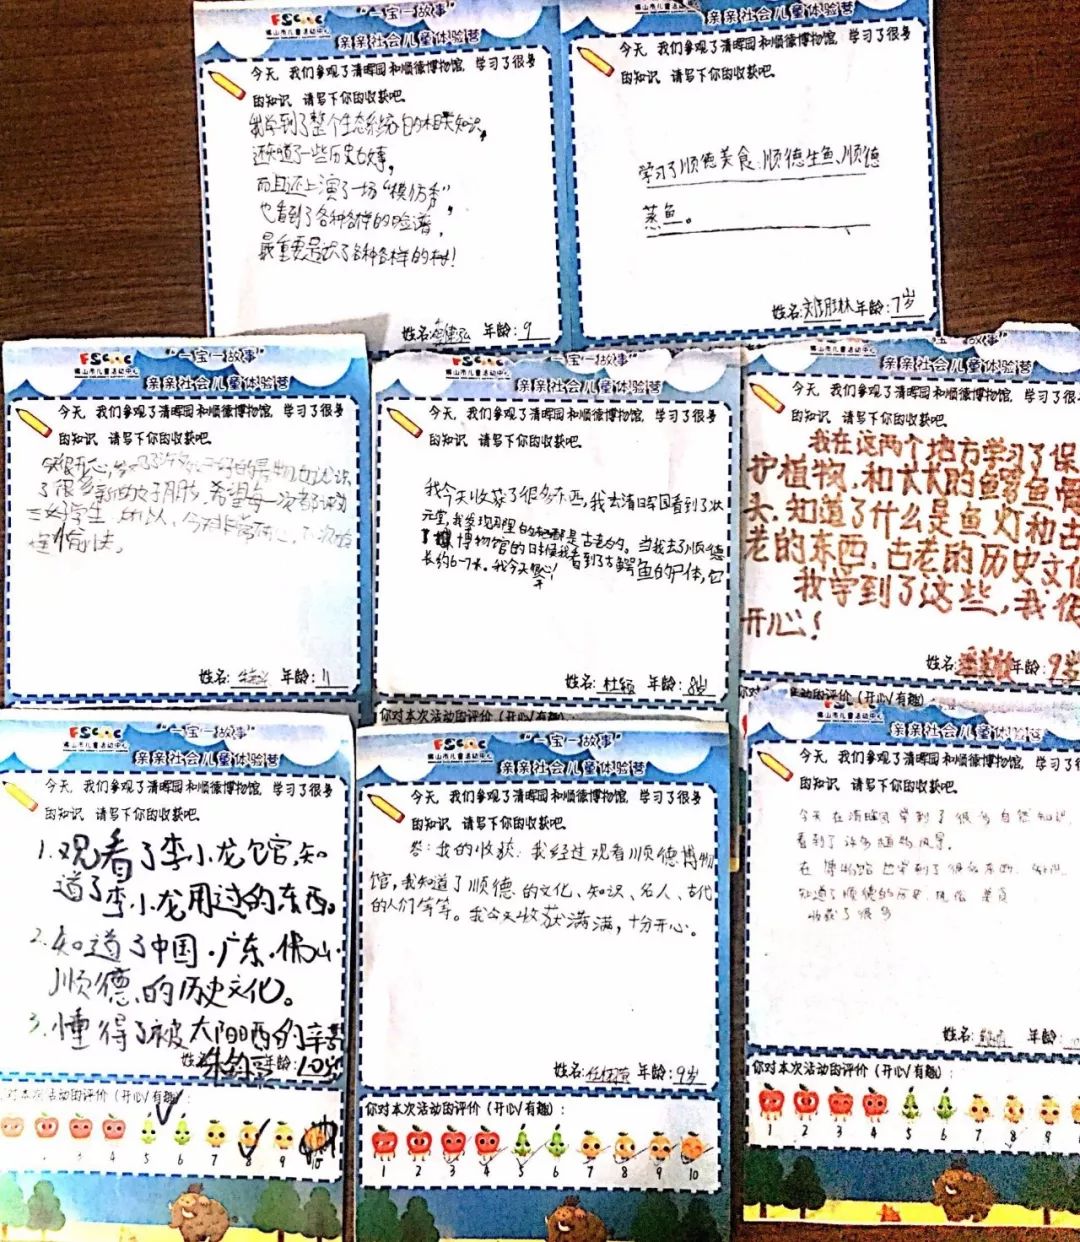 FSCAC
佛山市儿童活动中心
"一宝一故事"
亲亲社会儿童体验营
今天，我们参观了清晖园和顺德博物馆，学习了很多
的知识，请写下你的收获吧。
我学到了整个生态系统的相关知识，
还知道了一些历史故事，
而且还上演了一场"模仿秀"，
也看到了各种各样的脸谱，
最重要是认了各种各样的树！
姓名: 年龄: 9
佛山市儿童活动中心
亲亲社会儿童体验营
今天，我们参观了清晖园和顺德博物馆，学习了很多
的知识，请写下你的收获吧。
学习了顺德美食：顺德生鱼、顺德
蒸鱼。
姓名: 年龄: 7岁
FSCAC
佛山市儿童活动中心
"一宝一故事"
亲亲社会儿童体验营
今天，我们参观了清晖园和顺德博物馆，学习了很多
的知识，请写下你的收获吧。
今天很开心，
了很多新的 希望每一次都
三好学生 今天非常开心，
愉快。
姓名: 年龄: 11
FSCAC
佛山市儿童活动中心
"一宝一故事"
亲亲社会儿童体验营
今天，我们参观了清晖园和顺德博物馆，学习了很多
的知识，请写下你的收获吧。
我今天收获了很多东西，我去清日军园看到了状
元堂，我发现园里的 都是古老的。当我去了顺德
博物馆的日时候我看到了古鳄鱼的尸体，它
长约6-7米。我今天 开心！
姓名: 杜 年龄: 8岁
你对本次活动的评价（开心/有趣）:
"一宝一故事"
亲亲社会儿童体验营
今天，我们参观了清晖园和顺德博物馆，学习了很
的知识，请写下你的收获吧。
我在这两个地方学习了保
护植物，和大大的鳄鱼骨
头，知道了什么是鱼灯和古
老的东西，古老的历史文化
我学到了这些，我很
开心！
姓名: 年龄: 9岁
你对本次活动的评价（开心/有趣）
FSCAC
佛山市儿童活动中心
"一宝一故事"
亲亲社会儿童体验营
今天，我们参观了清晖园和顺德博物馆，学习了很多
的知识，请写下你的收获吧。
1.观看了李小龙馆，知
道了李小龙用过的东西。
2.知道了中国·广东·佛山·
顺德的历史文化。
3.懂得了被太阳晒的辛苦
姓名: 朱 年龄: 10岁
你对本次活动的评价（开心/有趣）:
5 6 7 8 9 10
FSCAC
佛山市儿童活动中心
"一宝一故事"
亲亲社会儿童体验营
今天，我们参观了清晖园和顺德博物馆，学习了很多
的知识，请写下你的收获吧。
答：我的收获：我经过观看顺德博物
馆，我知道了顺德的文化、知识、名人、古代
的人们等等。我今天收获满满，十分开心。
姓名: 年龄: 9岁
你对本次活动的评价（开心/有趣）:
1 2 3 4 5 6 7 8 9 10
佛山市儿童活动中心
"一宝一故事"
亲亲社会儿童体验营
今天，我们参观了清晖园和顺德博物馆，学习了很
的知识，请写下你的收获吧。
今天在清晖园学到了很多自然知识，
看到了许多植物风景。
在博物馆也学到了很多东西，
知道了顺德的历史
收获了很多
姓名: 年龄:
你对本次活动的评价（开心/有趣）:
1 2 3 4 5 6 7 8 9